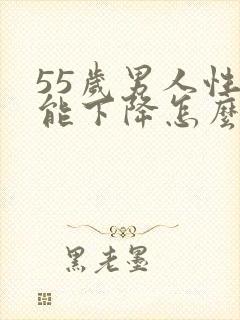 55歲男人性
能下降怎麼
黑老墨